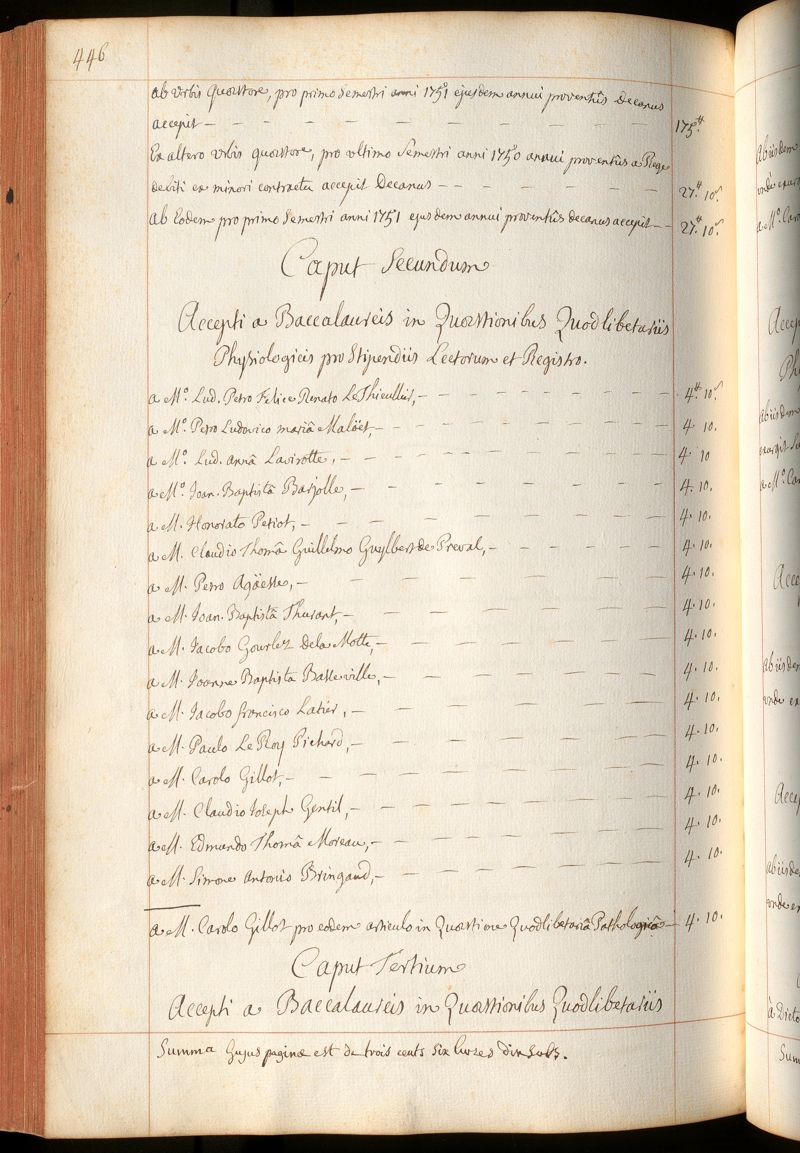 446
ab Urbis Quæstore, pro primo Semestri anni 1751 ejusdem annui proventûs Decanus
accepit — 175.ᵗᵗ
Ex altero Urbis quæstore, pro ultimo Semestri anni 1750 annui proventûs a Rege
debiti ex minori contractu accepit Decanus — 27.ᵗᵗ 10ˢ.
ab Eodem pro primo Semestri anni 1751 ejusdem annui proventûs decanus accepit — 27.ᵗᵗ 10ˢ.
Caput Secundum
Accepti a Baccalaureis in Quæstionibus Quodlibetariis
Physiologicis pro Stipendiis Lectorum et Registro.
a M.º Lud. Petro Felice Renato LeThieullier, — 4ᵗᵗ. 10ˢ.
a M.º Petro Ludovico mariâ Maloët, — 4. 10.
a M.º Lud. annâ Lavirotte, — 4. 10
a M.º Joan. Baptistâ Barjolle, — 4. 10.
a M. Honorato Petiot, — 4. 10.
a M. Claudio Thomâ Guillelmo Guylbert de Preval, — 4. 10.
a M. Petro Agäesse, — 4. 10.
a M. Joan. Baptistâ Thurant, — 4. 10.
a M. Jacobo Gourlez Dela Motte, — 4. 10.
a M. Joanne Baptista Basseville, — 4. 10.
a M. Jacobo francisco Latier, — 4. 10.
a M. Paulo Le Roy Pichard, — 4. 10.
a M. Carolo Gillot, — 4. 10.
a M. Claudio Joseph Gentil, — 4. 10.
a M. Edmundo Thomâ Moreau, — 4. 10.
a M. Simone Antonio Bringaud, — 4. 10.
a M. Carolo Gillot pro eodem articulo in Quæstione Quodlibetariâ Pathologicâ — 4. 10.
Caput Tertium
Accepti a Baccalaureis in Quæstionibus Quodlibetariis
Summa hujus paginæ est de trois cents six livres dix sols.